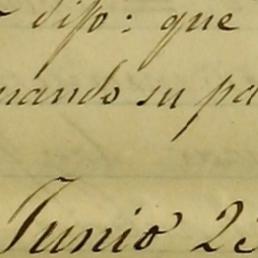 dijo: que
mando su pa
Junio 23